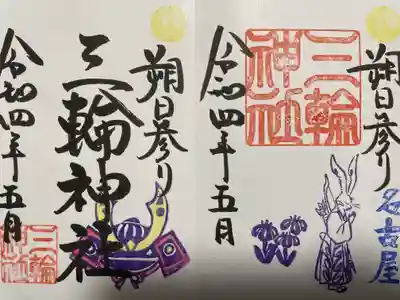 朔日参り
三輪神社
令和四年五月
三輪神社
朔日参り
名古屋
三輪神社
令和四年五月